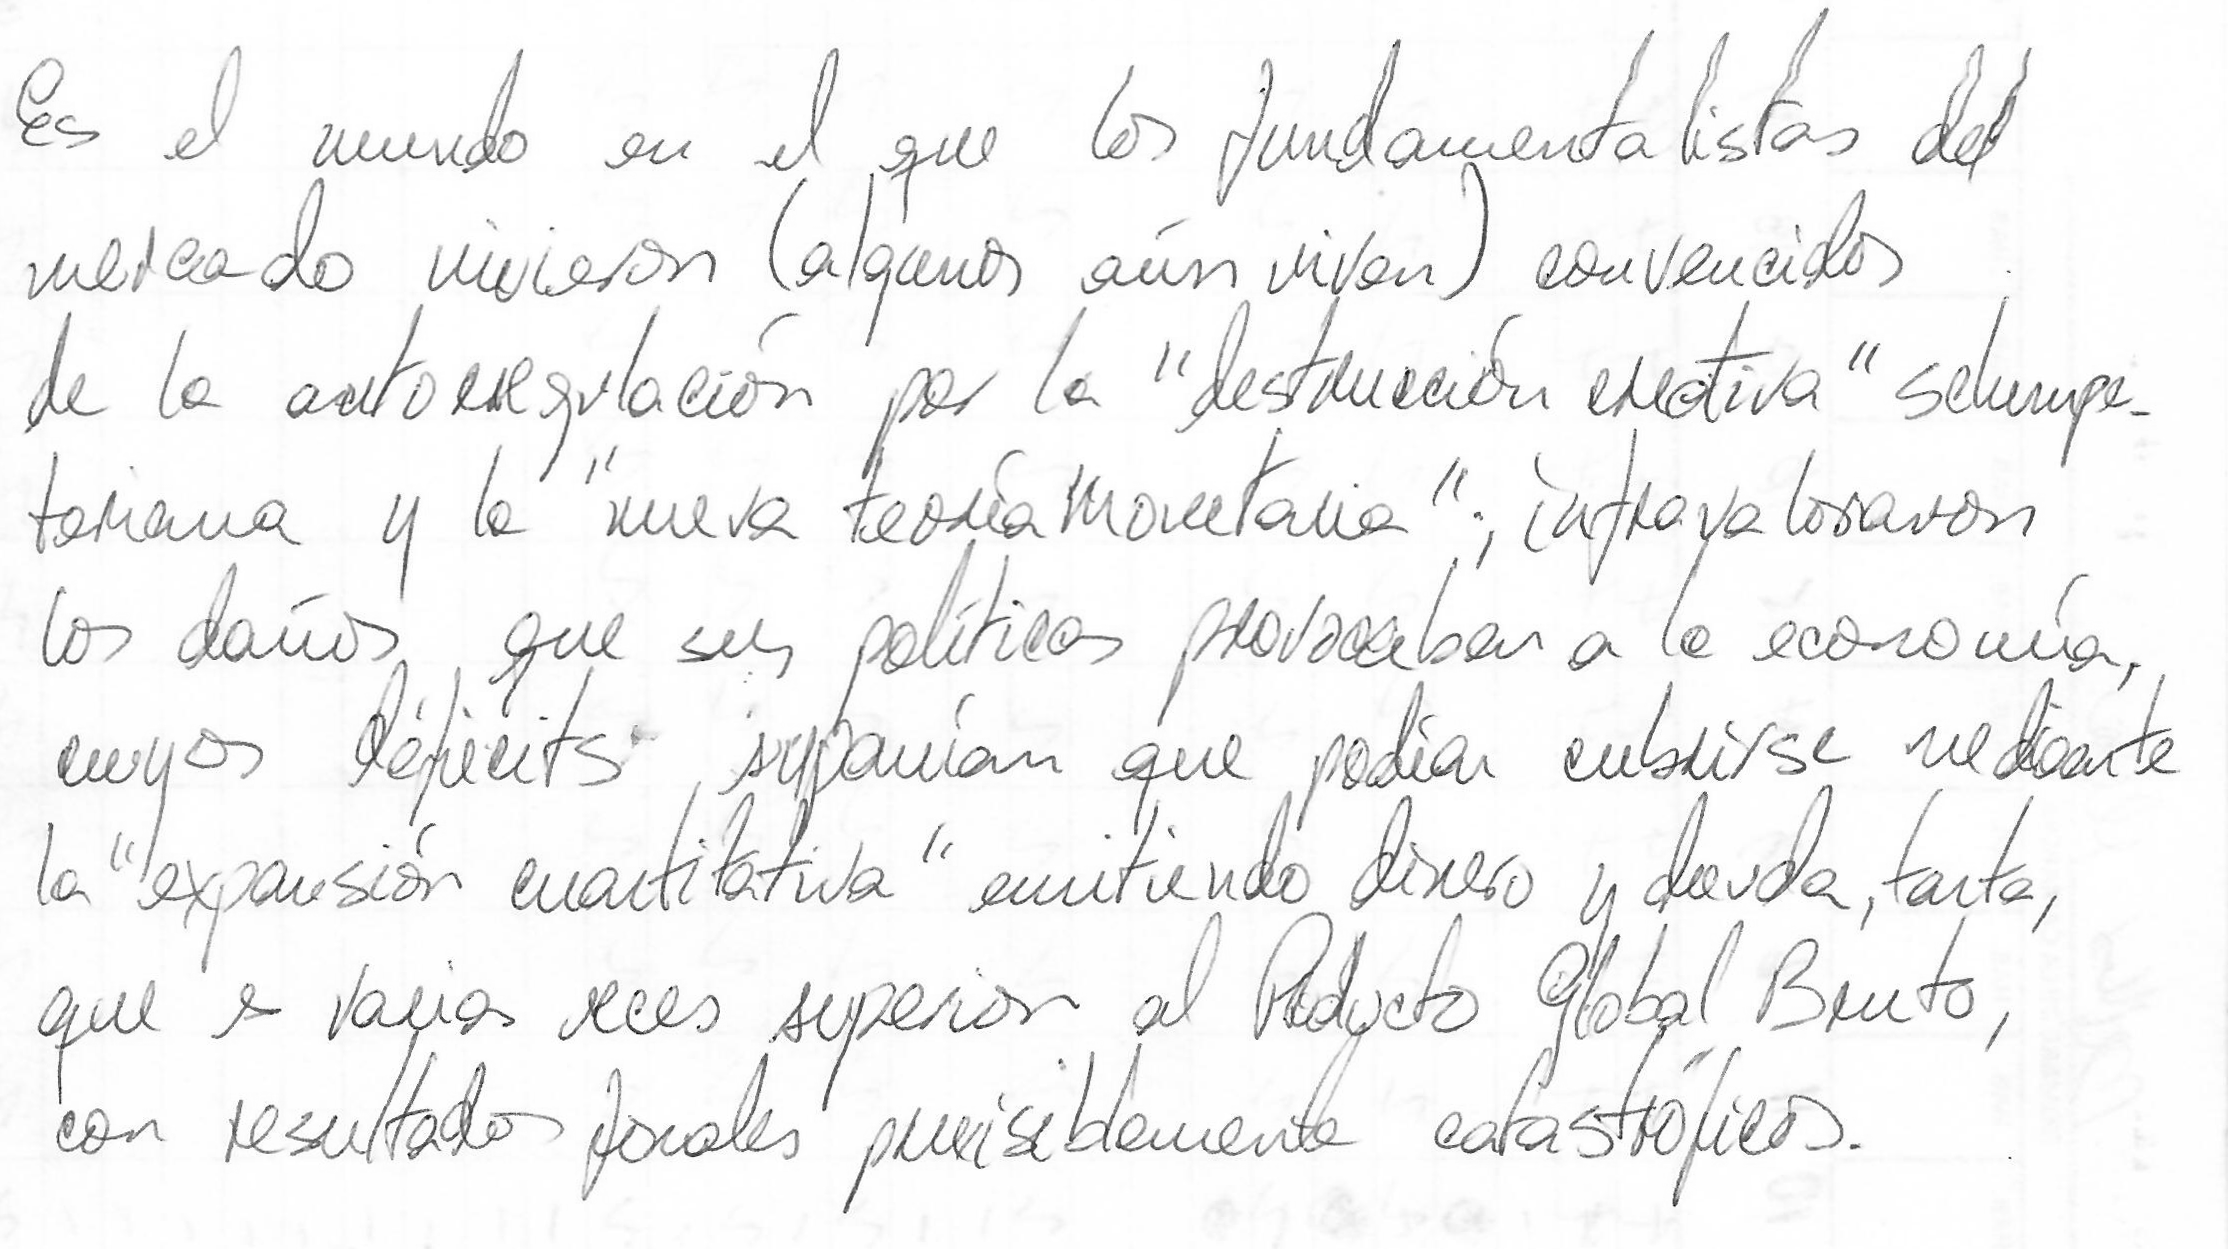 Es el mundo en el que los fundamentalistas del
mercado vivieron (algunos aún viven) convencidos
de la autorregulación por la "destrucción creativa" schumpe-
teriana y la "nueva teoría monetaria"; infravaloraron
los daños que sus políticas provocaban a la economía,
cuyos déficits suponían que podían cubrirse mediante
la "expansión cuantitativa" emitiendo dinero y deuda, tanta,
que es varias veces superior al Producto Global Bruto,
con resultados finales previsiblemente catastróficos.